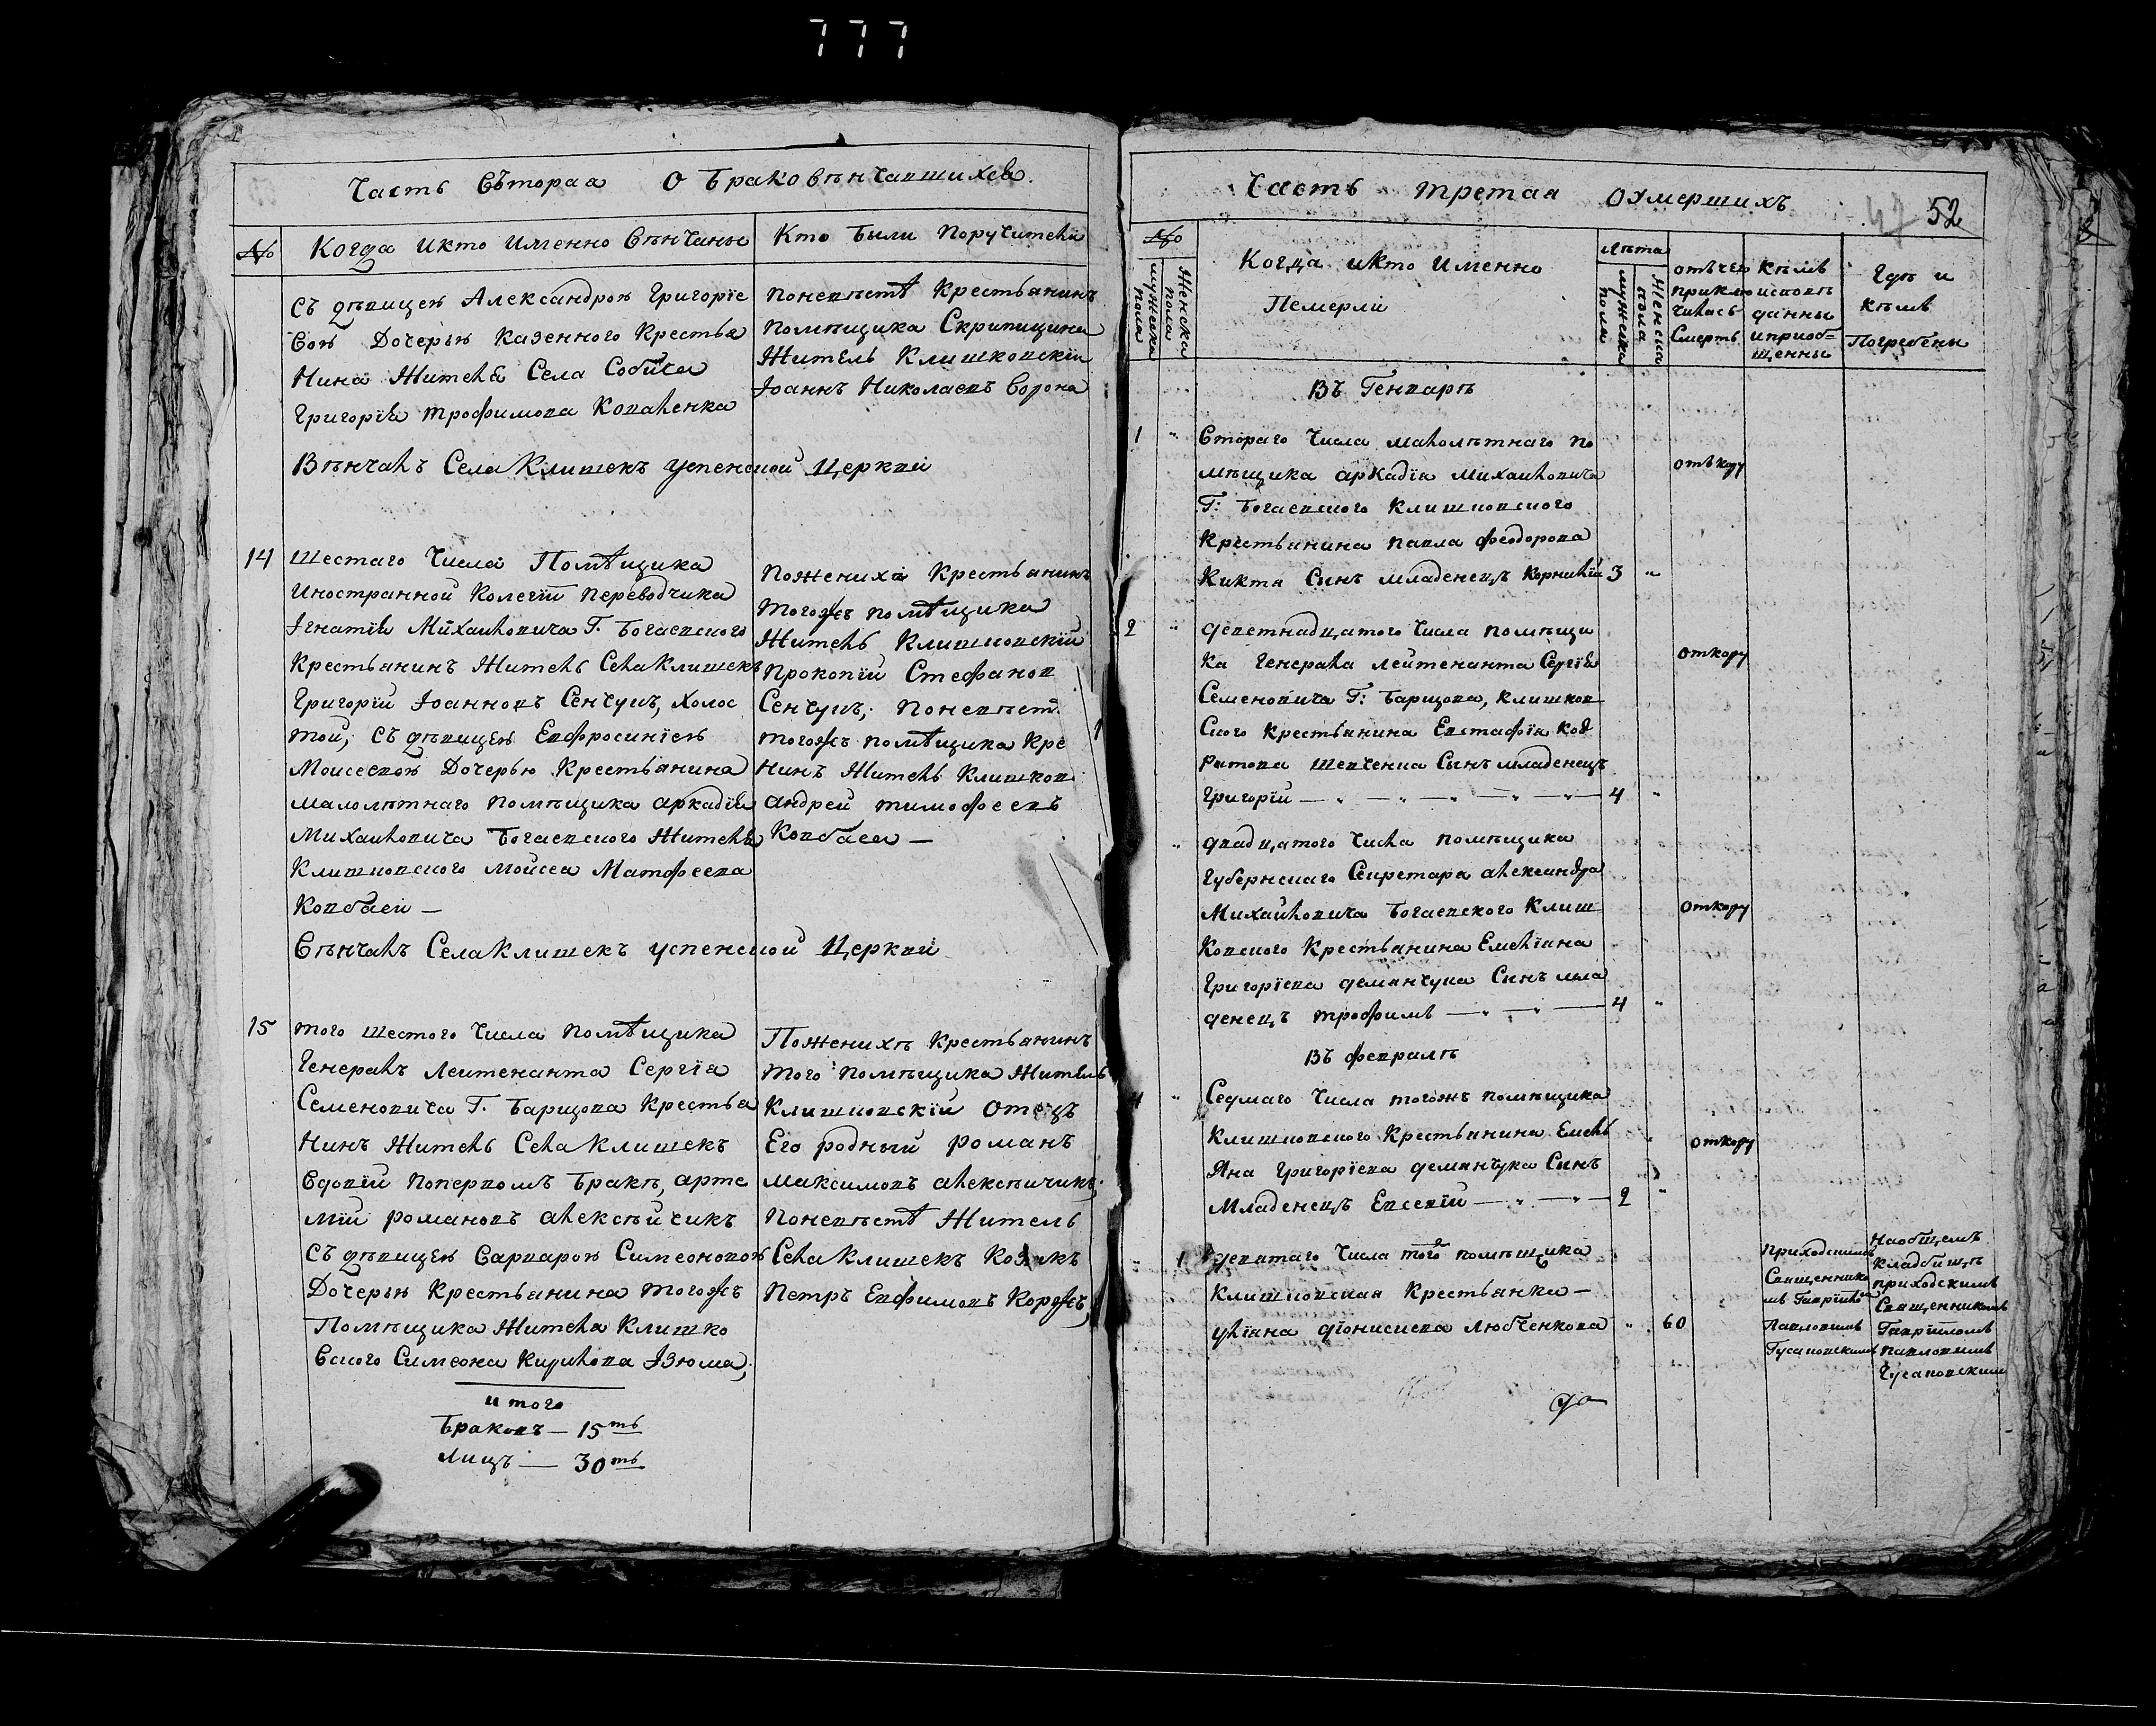 777
Часть вътораа О Браковѣнчавшихся.
№ Когда икто именно вѣнчаны
Кто были Поручители
съ дѣвицею Александрою Григорїе
вою Дочерью казенного крестья
нина жителя Села Собича
Григорїя трофимова коваленка
Вѣнчалъ Села Клишекъ успенской Церкви
поневѣстѣ Крестьянинъ
помѣщика Скрипицина
Житель Клишковскїй
Іоаннъ Николаевъ Ворона
14 шестаго числа Помѣщика
иностранной Колегїи переводчика
Ігнатїя Михаиловича Г. Богаевского
крестьянинъ житель Села Клишекъ
Григорїй Іоанновъ Сенчукъ, холос
той; съ дѣвицею Евфросинїею
Моисеевою Дочерью крестьянина
малолѣтнаго помѣщика аркадїя
Михаиловича Богаевского жителя
Клишковского Мойсея Матфеева
Ковбаси —
Вѣнчалъ Села Клишекъ успенской Церкви
Поженихѣ Крестьянинъ
тогожъ помѣщика
Житель Клишковскїй
Прокопїй Стефанов
Сенчукъ; поневѣст
тогожъ помѣщика кре
нинъ житель клишков
андрей тимофеевъ
Ковбаса —
15 того шестого числа помѣщика
Генералъ Лейтенанта Сергїя
Семеновича Г. Барщова крестья
нинъ житель Села клишекъ
вдовїй поперьвомъ бракѣ, арте
мїй романовъ алексѣйчикъ
съ дѣвицею варварою Симеоновою
Дочерью крестьянина тогожъ
Помѣщика жителя Клишко
вского Симеона Кирилова Ізюма;
Поженихѣ крестьянинъ
того помѣщика житель
Клишковскїй отецъ
Его родный романъ
максимовъ алексѣичикъ;
Поневѣстѣ житель
Села клишекъ Козакъ
Петръ Евфимовъ Коржъ;
итого
Браковъ — 15ть
Лицъ — 30ть
Часть третая оумершихъ
47 52
№
мужеска пола
Женска пола
Когда икто именно
Пемерлї
лѣта
мужеска пола
Женска пола
отъчего приключилась Смерть
Кѣмъ исповѣданны иприобщенны
Гдѣ и кѣмъ Погребены
Въ Генварѣ
1 " Втораго числа малолѣтнаго по
мѣщика аркадїя михаиловича
Г: Богаевского клишковского
крестьянина павла феодорова
Киктя Синъ младенецъ Корнилїй 3 "
отъкору
2 " деветнадцатого числа помѣщи
ка Генерала лейтенанта Сергїя
Семеновича Г: Барщова, клишков
ского крестьянина Евстафїя код
ратова шевченка Сынъ младенецъ
Григорїй — " — " — " — " — 4 "
откору
" двадцатого числа помѣщика
Губернскаго Секретаря александра
Михаиловича Богаевского Клиш
ковского крестьянина Емелїана
Григорїева деманчука Синъ мла
денецъ трофимъ — " — " — 4 "
откору
Въ февралѣ
4 " Седмаго числа тогожъ помѣщика
Клишковского крестьянина Емель
яна Григорїева деманчука Синъ
Младенецъ Евсевїй — " — " — 2 "
откору
" 1 деватаго числа того помѣщика
Клишковская крестьянка —
улїяна дїонисиева любченкова " 60
приходскимъ
Священнико
мъ Гаврїило
Павловимъ
Гусаковскимъ
Наобщемъ
кладбищѣ
приходскимъ
Священникомъ
Гаврїиломъ
павловимъ
Гусаковским